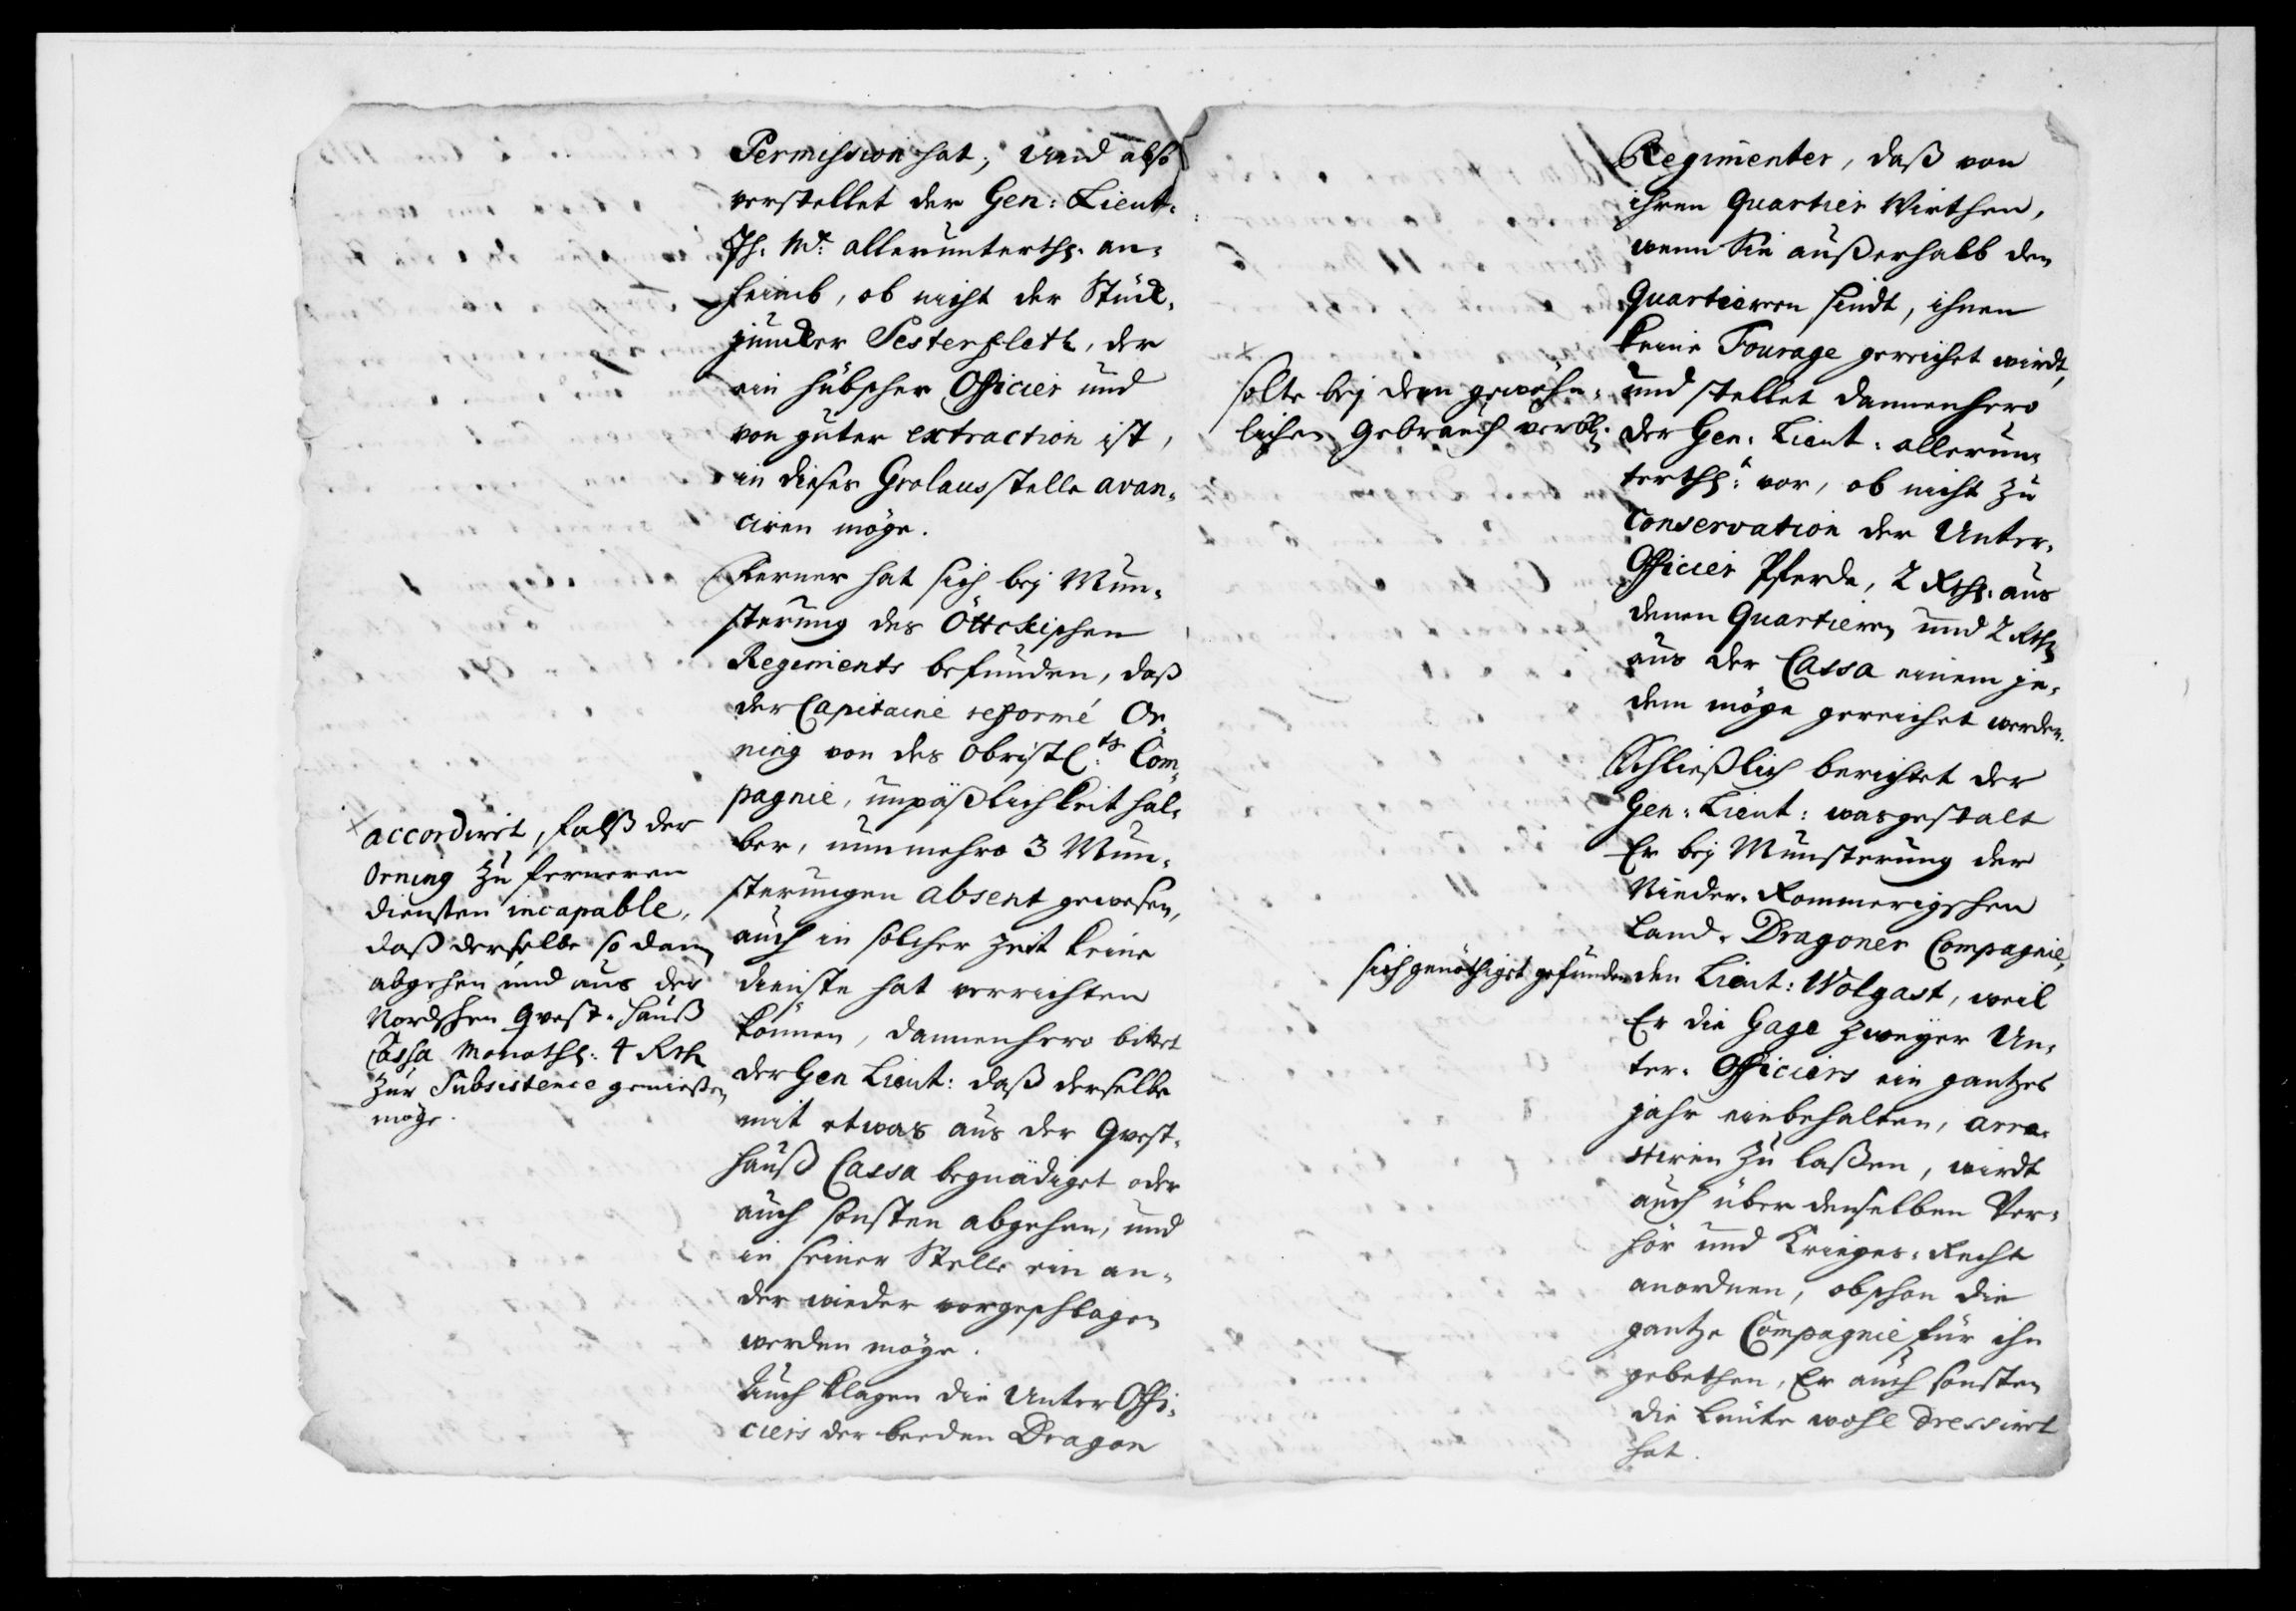 Permission hat; und also
verstellet der Gen: Lieut:
Ih. M. allerunterthg. an-
heimb, ob nicht der Stück-
juncker Sesterfleth, der
ein hübscher Officier und
von guter extraction ist,
in dieses Grolaus stelle avan-
ciren möge.
Ferner hat sich beÿ Mun-
sterung des Öttckischen
Regiments befunden, daß
der Capitaine reformé Or-
ning von des Obristl:ts Com-
pagnie, unpäßlichkeit hal-
ber, nunmehro 3 Mun-
sterungen absent gewesen,
auch in solcher Zeit keine
dienste hat verrichten
können, dannenhero bittet
der Gen Lieut: daß derselbe
mit etwas aus der Qvest-
hauß Cassa begnädiget oder
auch sonsten abgehen, und
in seiner Stelle ein an-
der wieder vorgeschlagen
werden möge.
Auch klagen die Unter Offi-
ciers der beeden Dragon
accordirt, falß der
Orning zu ferneren
diensten incapable,
daß derselbe so dann
abgehen und aus der
Nordschen Qvest-Hauß
Cassa Monathl: 4 Rth
zur Subsistence genießen
möge.
Regimenter, daß von
ihren Quartier Wirthen,
wenn Sie außerhalb den
Quartieren sindt, ihnen
keine Fourage gereichet wirdt,
und stellet dannenhero
der Gen: Lieut: allerun-
terthg: vor, ob nicht zu
Conservation der Unter-
Officier Pferde, 2 Rth: aus
denen Quartieren und 2 Rth
aus der Cassa einem je-
dem möge gereichet werden.
Schließlich berichtet der
Gen: Lieut: wasgestalt
Er beÿ Munsterung der
Nieder-Rommerigschen
Land-Dragoner Compagnie,
sich genöthiget gefunden den Lieut: Wolgast, weil
Er die Gage zweÿer Un-
ter-Officiers ein gantzes
jahr einbehalten, arre-
stiren zu laßen, wirdt
auch über denselben Ver-
hör und Krieges-Recht
anordnen, obschon die
gantze Compagnie für ihn
gebethen, Er auch sonsten
die Leute wohl dressirt
hat.
solte beÿ dem gewöhn-
lichen Gebrauch verbl: